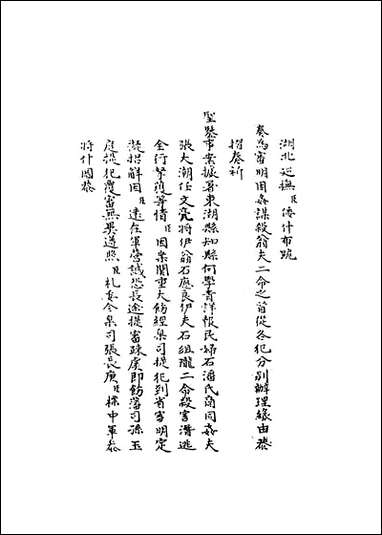 湖北巡撫臣倭什布跪
奏為審明因姦謀殺翁夫二命之首從各犯分別辦理緣由恭
摺奏祈
聖鑒事案據署東湖縣知縣何學青詳報民婦石潘氏商同姦夫
張大潮任文亮將伊翁石應良伊夫石組隴二命殺害潛逃
全行拏獲等情臣因案關重大飭經臬司提犯到省審明定
擬招解因臣遠在軍營誠恐長途提審疎虞即飭藩司孫玉
庭提犯覆審無異遵照臣札委令臬司張長庚臣標中軍參
將什國泰